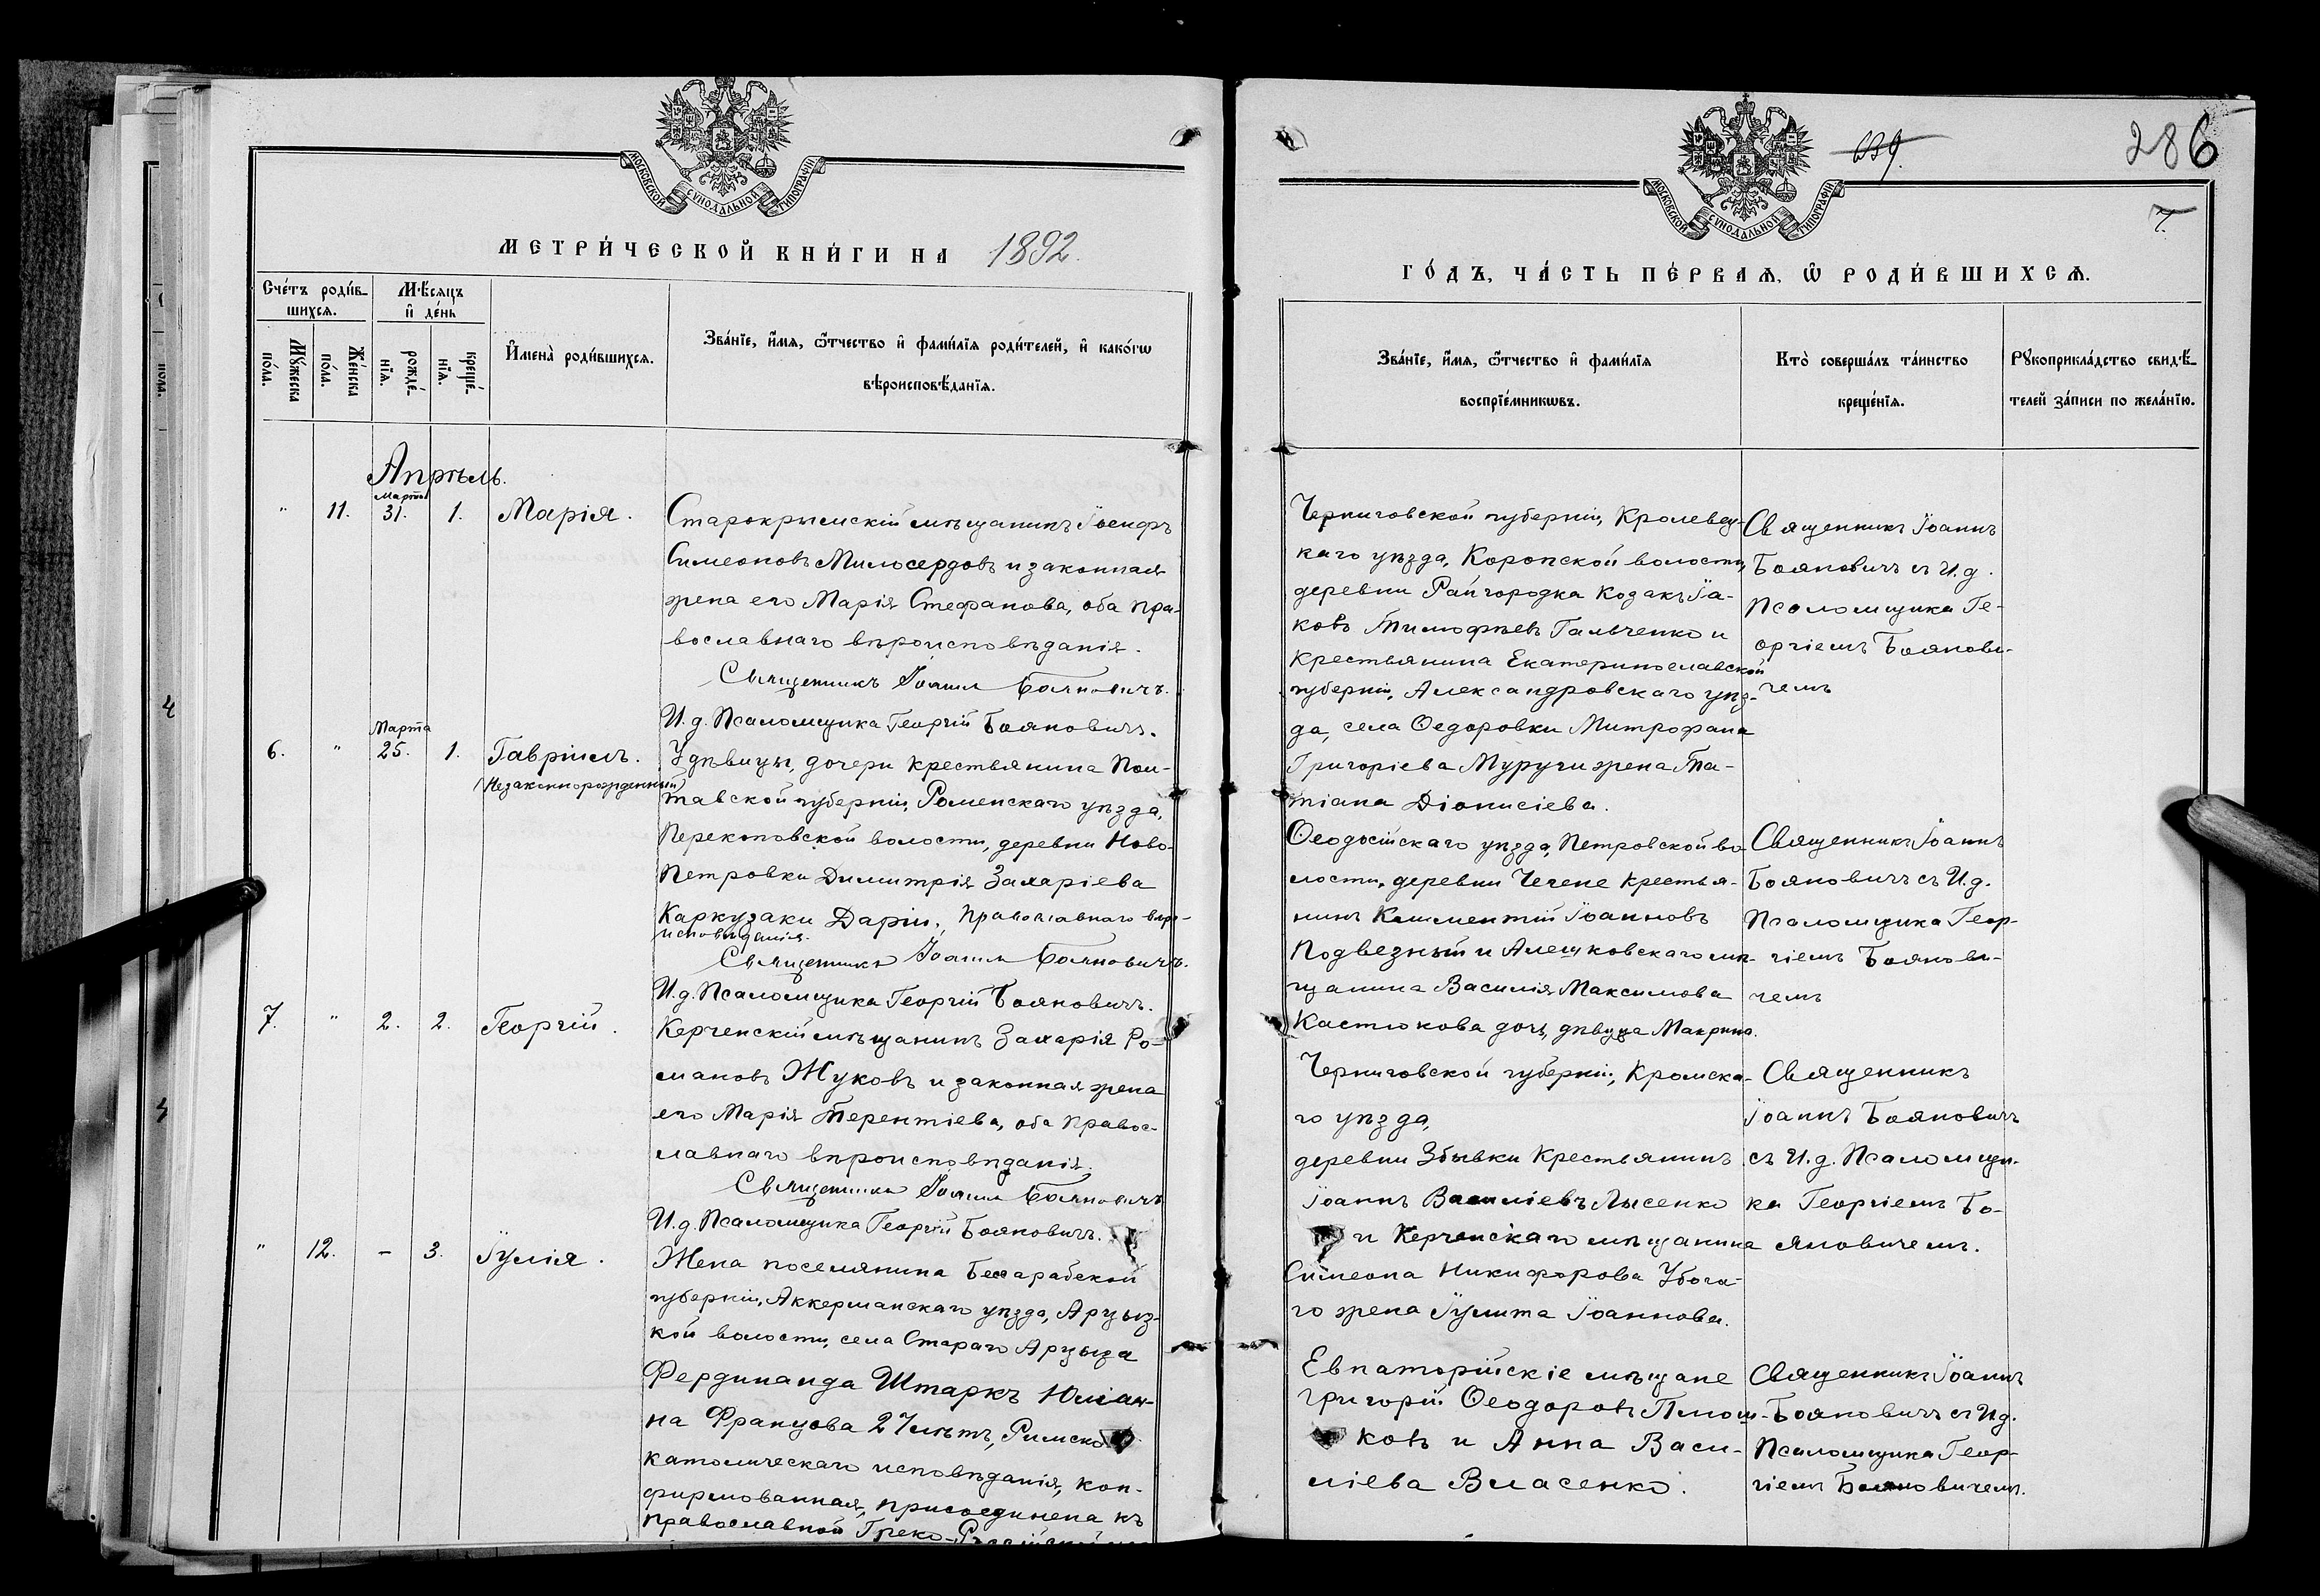 МОСКОВСКОЙ СУНОДАЛЬНОЙ ТИПОГРАФІИ
МЕТРИ́ЧЕСКОЙ КНИ́ГИ НА 1892.
Сче́тъ роди́в-
шихсѧ.
Мꙋ́жеска по́ла.
Же́нска по́ла.
Мѣ́сяцъ
и҆ де́нь
рожде́-
нїѧ.
креще́-
нїѧ.
И҆мена̀ роди́вшихсѧ.
Зва́нїе, и҆́мѧ, ѻ҆́тчество и҆ фами́лїѧ роди́телей, и҆ како́гѡ
вѣроисповѣ́данїѧ.
Апрѣль.
" 11. Марта 31. 1. Марія.
Старокрымскій мѣщанинъ Іосифъ
Симеоновъ Милосердовъ и законная
жена его Марія Стефанова, оба пра-
вославнаго вѣроисповѣданія.
Священникъ Іоаннъ Бояновичъ.
И.д. Псаломщика Георгій Бояновичъ.
6. " Марта 25. 1. Гавріилъ.
(Незаконнорожденный)
У дѣвицы, дочери крестьянина Пол-
тавской губерніи, Роменскаго уѣзда,
Перекоповской волости, деревни Ново-
Петровки Димитрія Захаріева
Каркузаки Даріи, православнаго вѣро-
исповѣданія.
Священникъ Іоаннъ Бояновичъ.
И.д. Псаломщика Георгій Бояновичъ.
7. " 2. 2. Георгій.
Керченскій мѣщанинъ Захарія Ро-
мановъ Жуковъ и законная жена
его Марія Терентіева, оба правос-
лавнаго вѣроисповѣданія.
Священникъ Іоаннъ Бояновичъ
И.д. Псаломщика Георгій Бояновичъ.
" 12. – 3. Іулія.
Жена поселянина Бессарабской
губерніи, Аккерманскаго уѣзда, Арцыз-
кой волости, села Стараго Арцыза
Фердинанда Штаркъ Юліан-
на Францова 27 лѣтъ, Римско
католическаго исповѣданія, кон-
фирмованная, присоединена къ
православной Греко-Россійской
639.
286
7.
МОСКОВСКОЙ СУНОДАЛЬНОЙ ТИПОГРАФІИ
ГО́ДЪ, ЧА́СТЬ ПЕ́РВАѦ, Ѡ҆ РОДИ́ВШИХСѦ.
Зва́нїе, и҆́мѧ, ѻ҆́тчество и҆ фами́лїѧ
воспрїе́мникѡвъ.
Кто̀ соверша́лъ та́инство
креще́нїѧ.
Рꙋкоприкла́дство свидѣ́-
телей за́писи по жела́нїю.
Черниговской губерніи, Кролевец-
каго уѣзда, Коропской волости,
деревни Райгородка козакъ Іа-
ковъ Тимофѣевъ Гальченко и
крестьянина Екатеринославской
губерніи, Александровскаго уѣз-
да, села Ѳедоровки Митрофана
Григоріева Муруги жена Та-
тіана Діонисіева.
Священникъ Іоаннъ
Бояновичъ съ И.д.
Псаломщика Ге-
оргіемъ Боянови-
чемъ
Ѳеодосійскаго уѣзда, Петровской во-
лости, деревни Чегене крестья-
нинъ Климентій Іоанновъ
Подвезный и Алешковскаго мѣ-
щанина Василія Максимова
Кастюкова дочь, дѣвица Макрина.
Священникъ Іоаннъ
Бояновичъ съ И.д.
Псаломщика Геор-
гіемъ Боянови-
чемъ
Черниговской губерніи, Кромска-
го уѣзда,
деревни Збывки крестьянинъ
Іоаннъ Василіевъ Лысенко
и Керченскаго мѣщанина
Симеона Никифорова Убога-
го жена Іулита Іоаннова.
Священникъ
Іоаннъ Бояновичъ
съ И.д. Псаломщи-
ка Георгіемъ Бо-
яновичемъ.
Евпаторійскіе мѣщане
Григорій Ѳеодоровъ Плюш-
ковъ и Анна Васи-
ліева Власенко.
Священникъ Іоаннъ
Бояновичъ съ И.д.
Псаломщика Геор-
гіемъ Бояновичемъ.